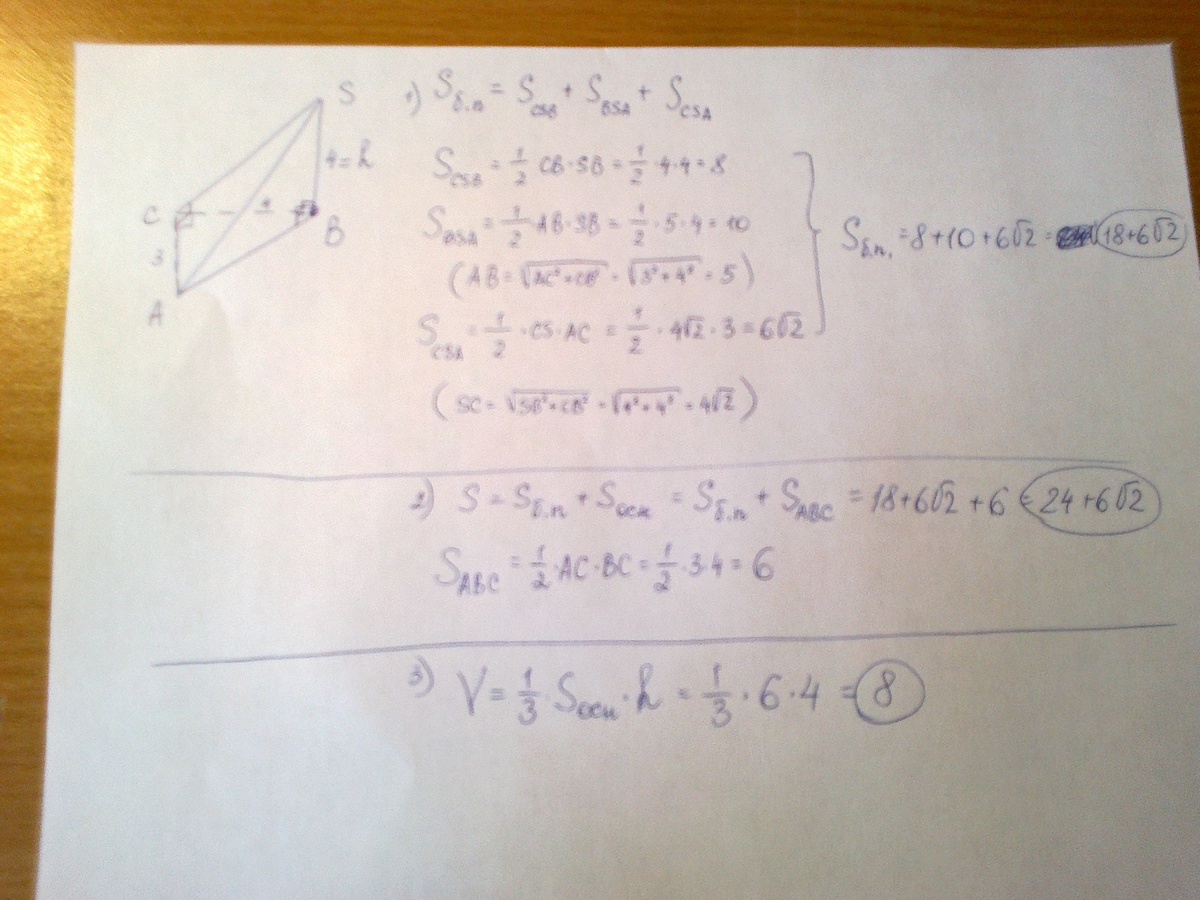 S
4=h
C
4
B
3
A
1) Sб.п = S_CSB + S_BSA + S_CSA
S_CSB = 1/2 CB·SB = 1/2·4·4=8
S_BSA = 1/2·AB·SB = 1/2·5·4=10
(AB=√(AC²+CB²) = √(3²+4²) = 5)
S_CSA = 1/2·CS·AC = 1/2·4√2·3=6√2
(SC=√(SB²+CB²) = √(4²+4²) = 4√2)
Sб.п. =8+10+6√2 = 18+6√2
2) S = Sб.п + Sосн = Sб.п + S_ABC = 18+6√2 +6 = 24+6√2
S_ABC = 1/2·AC·BC = 1/2·3·4 = 6
3) V = 1/3·Sосн·h = 1/3·6·4 = 8